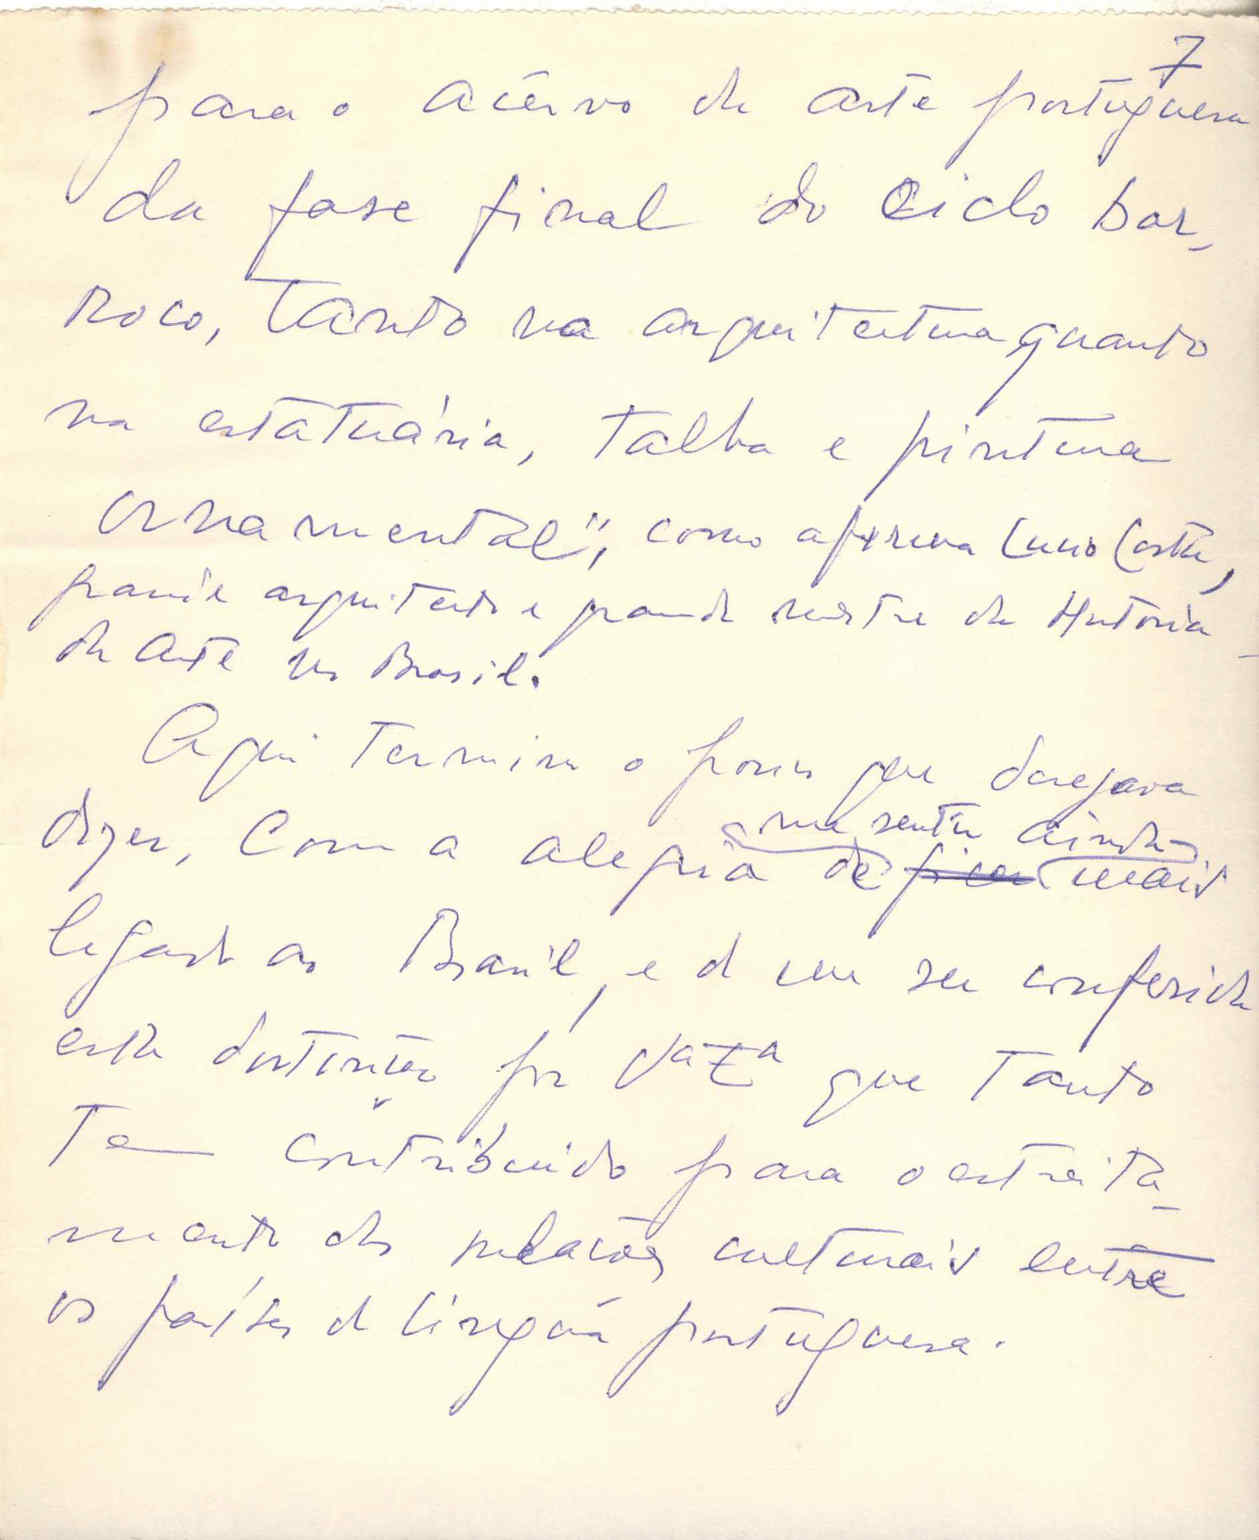 7
para o acêrvo da arte portuguesa
da fase final do ciclo bar-
roco, tanto na arquitectura quanto
na estatuária, talha e pintura
ornamental", como afirma Lucio Costa,
grande arquitecto e grande mestre da Historia
da Arte no Brasil.
Aqui termino o pouco que desejava
me sentir ainda
dizer, com a alegria de ficar mais
ligado ao Brasil, e de me ser conferida
esta distinção por que tanto
tem contribuido para o estreita-
mento das relações culturais entre
os países de língua portuguesa.